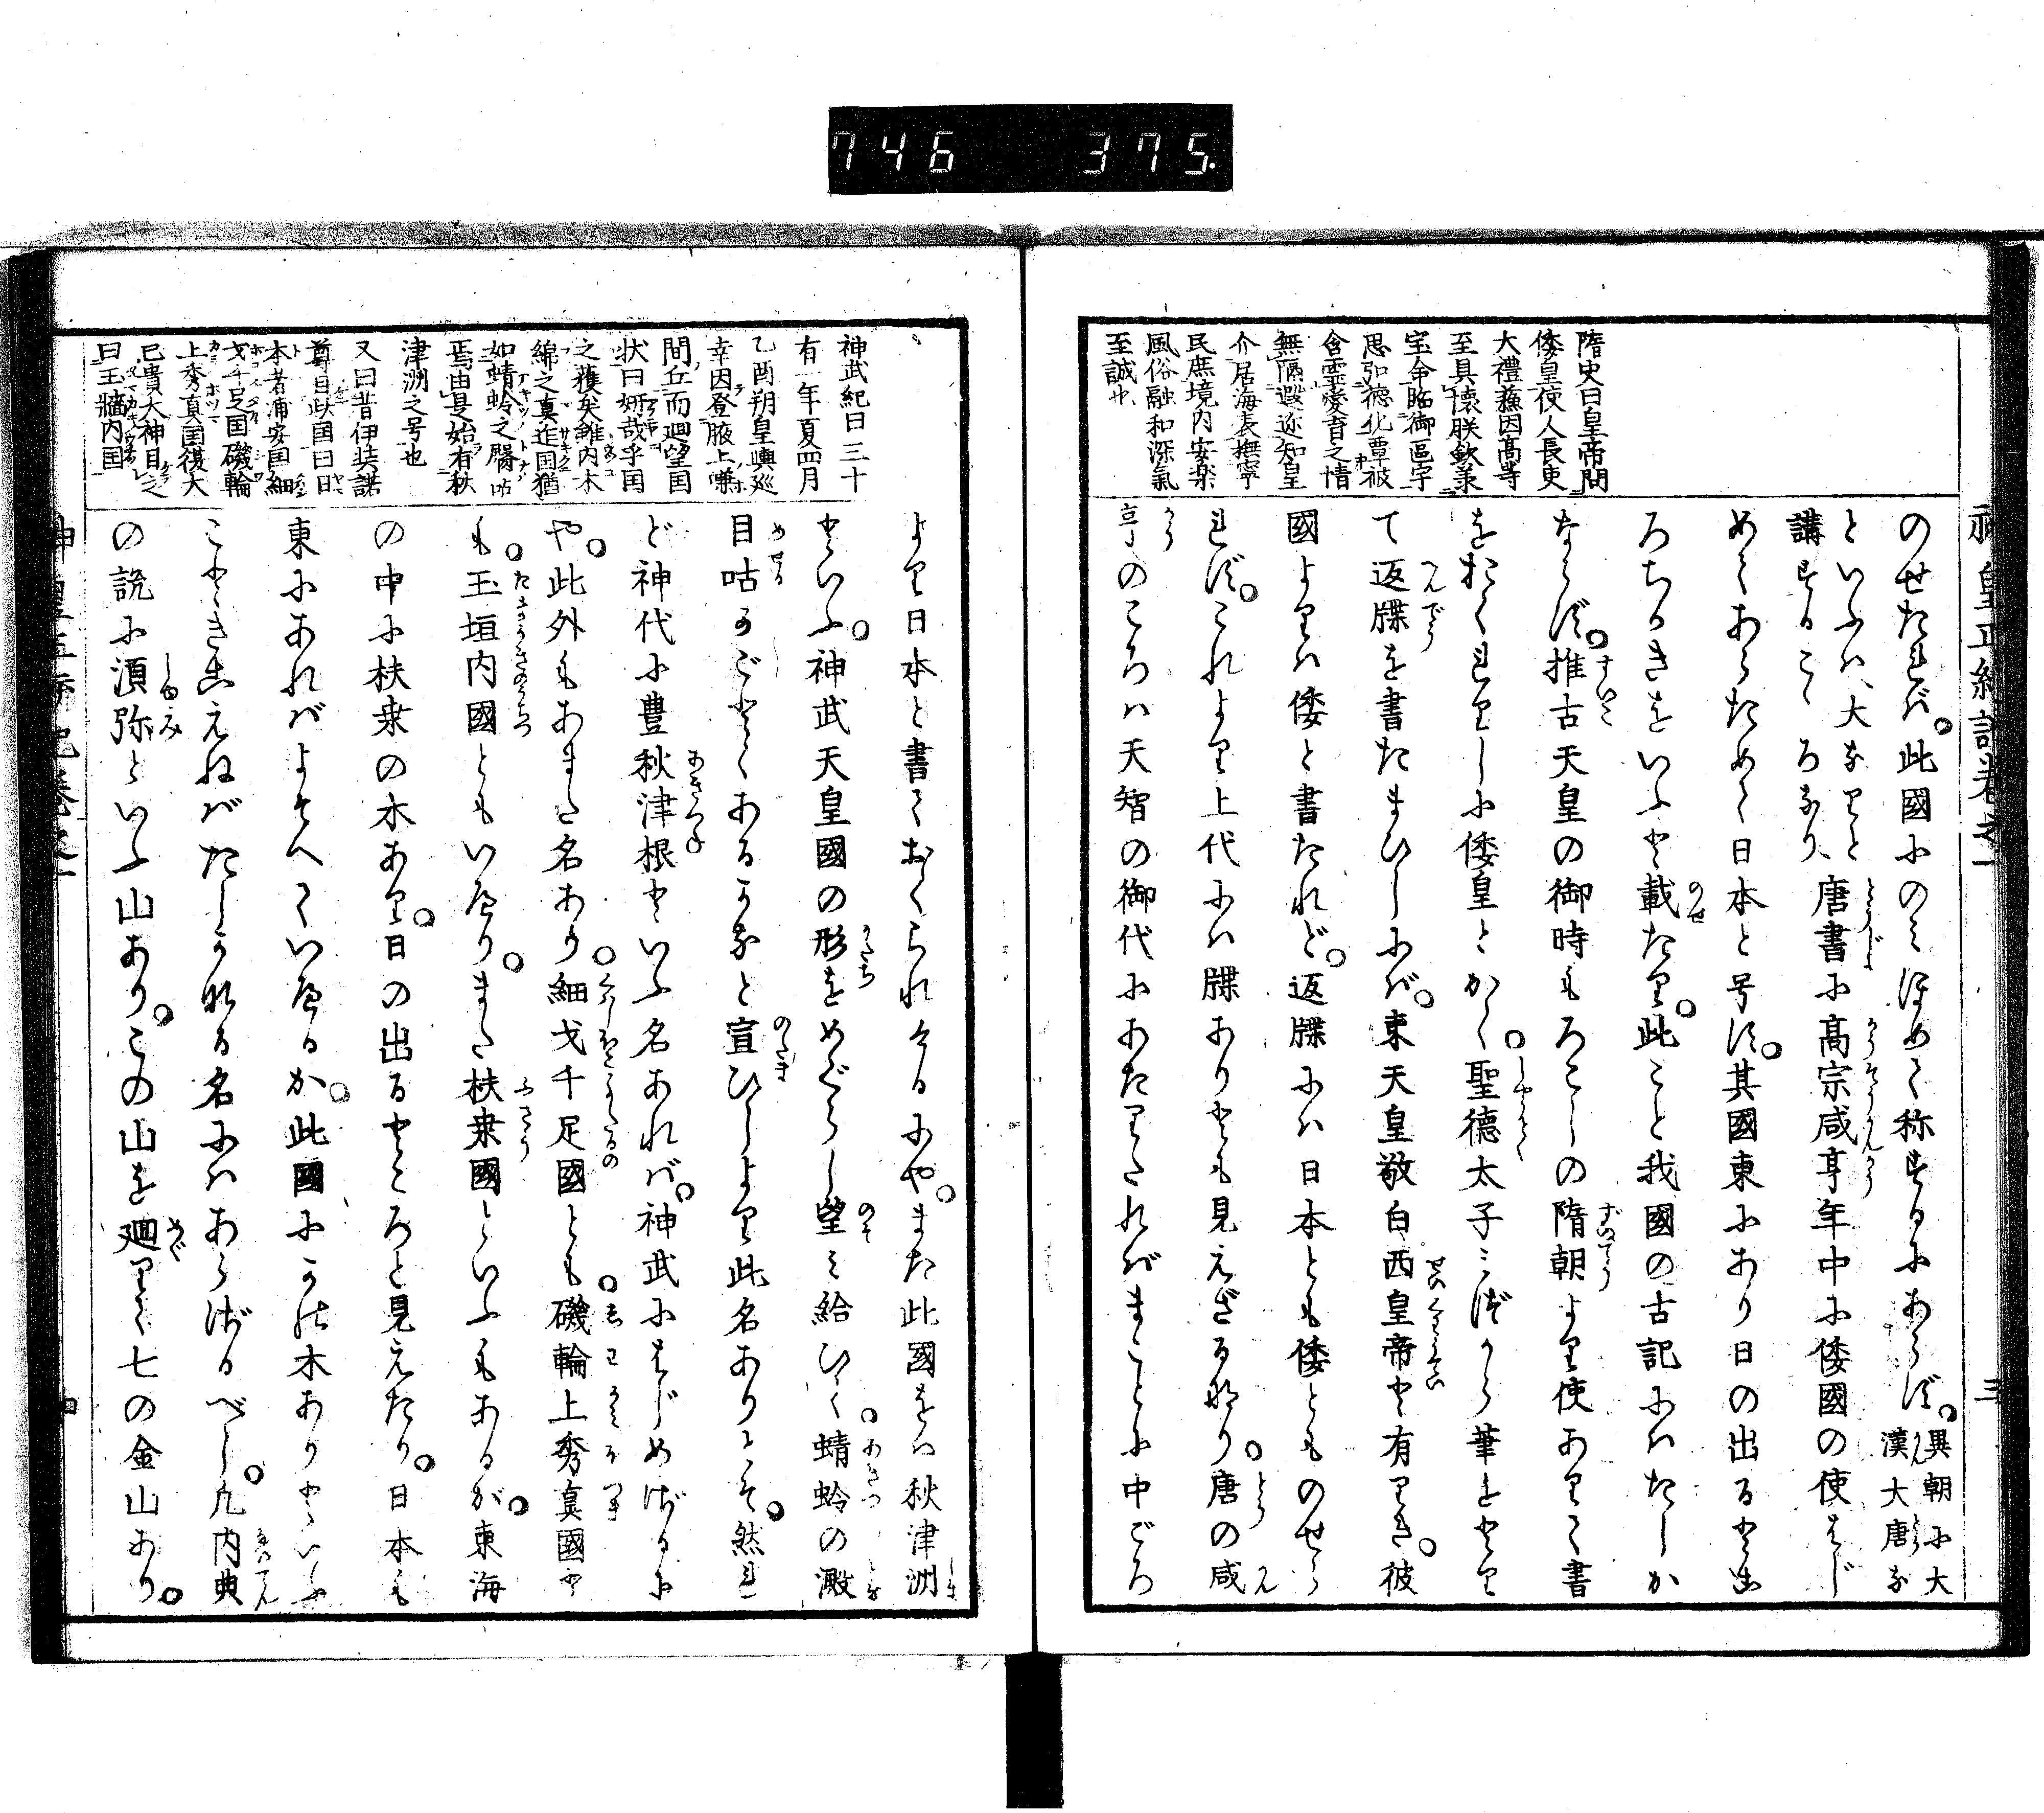 746 375.
神皇正統記卷之一 三
隋史曰皇帝問
倭皇使人長吏
大禮蘓因高等
至具懷朕欽承
宝命臨御區宇
思弘德化覃被
含霊愛育之情
無隔遐迩知皇
介居海表撫寧
民庶境内安楽
風俗融和深氣
至誠也
のせたれば。此國にのミほめて称するにあらず。異朝に大漢大唐な
どいふハ、大なりと
講するこゝろなり、唐書に高宗咸亨年中に倭國の使はじ
めてあらためて日本と号す。其國東にあり日の出る所に
ちかきをいふと載たり。此こと我國の古記にハたしか
ならず。推古天皇の御時もろこしの隋朝より使ありて書
をおくれりしに倭皇とかく。聖德太子ミづから筆をとり
て返牒を書たまひしにハ。東天皇敬白西皇帝と有りき。彼
國よりハ倭と書たれど。返牒にハ日本とも倭とものせら
れず。これより上代にハ牒ありとも見えざるなり。唐の咸
亨のころハ天智の御代にあたりたればまことに中ごろ
神武紀曰三十
有一年夏四月
乙酉朔皇輿廵
幸因登腋上嗛
間丘而廻望国
状曰姸哉乎国
之獲矣雖内木
綿之真迮国猶
如蜻蛉之臀呫
焉由是始有秋
津洲之号也
又曰昔伊奘諾
尊目此国曰日
本者浦安国細
戈千足国磯輪
上秀真国復大
己貴大神目之
曰玉牆内国
より日本と書ておくられけるにや。また此國をハ秋津洲
といふ。神武天皇國の形をめぐらし望ミ給ひて。蜻蛉の臀
呫のごとくあるかなと宣ひしより此名ありとぞ。然れ
ど神代に豊秋津根といふ名あれば。神武にはじめざるに
や。此外もあまた名あり。細戈千足國とも。磯輪上秀真國と
も。玉垣内國ともいへり。また扶桒國といふもあるか。東海
の中に扶桒の木あり。日の出るところと見えたり。日本も
東にあればよそへていへるか。此國にかの木ありといふ
こときこえねばたしかなる名にハあらざるべし。凡内典
の説に須弥といふ山あり。この山を廻りて七の金山あり。
神皇正統記卷之一